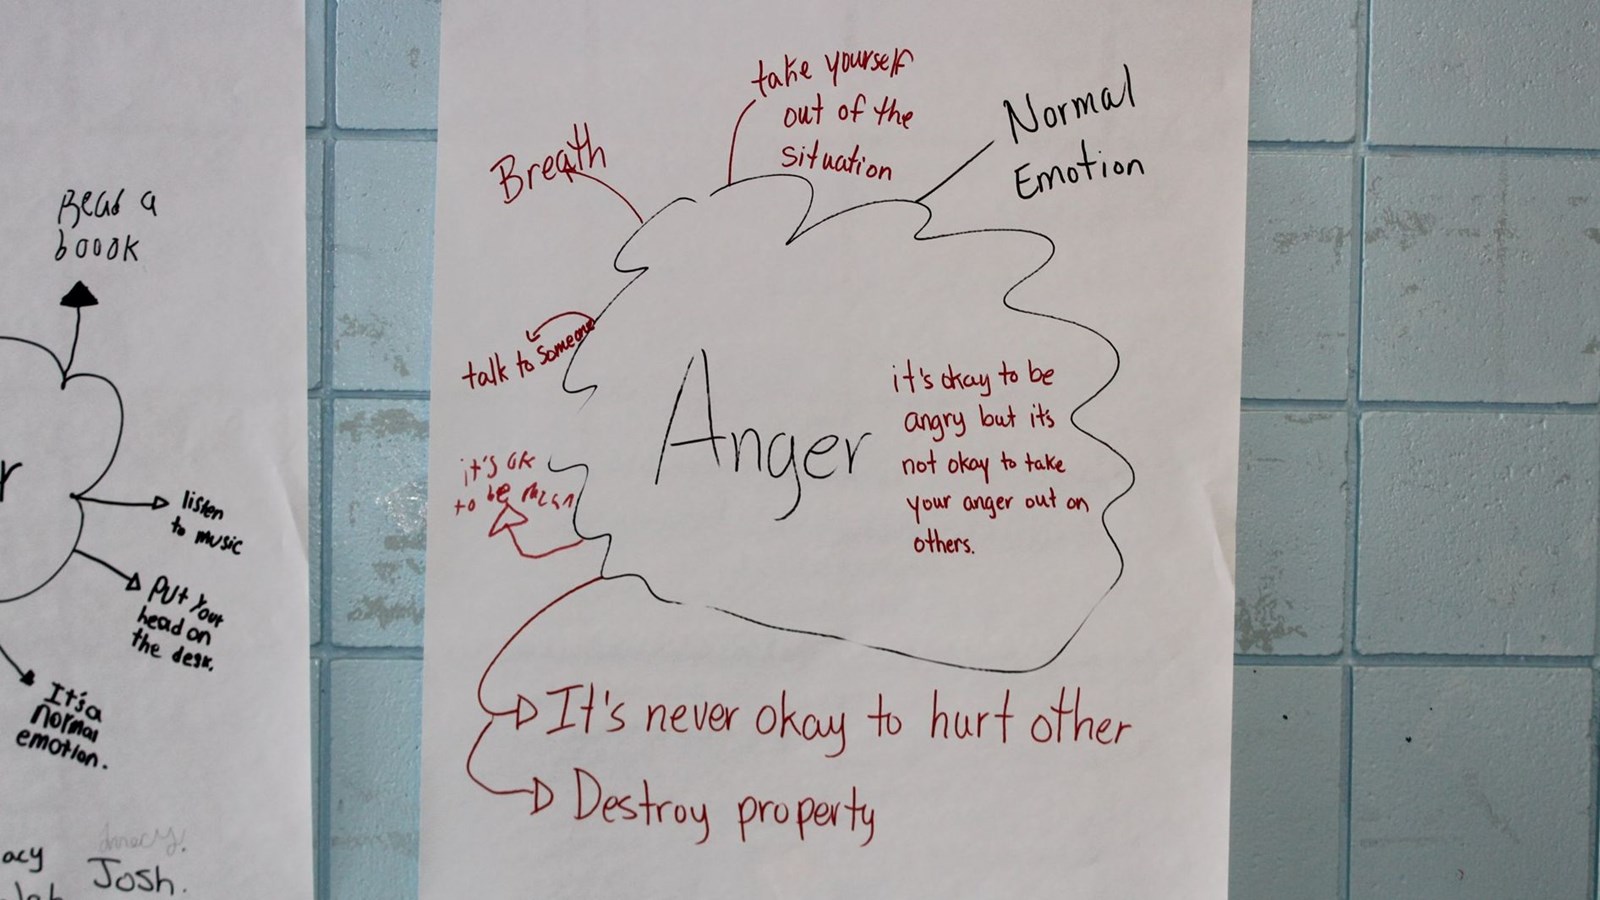 Read a
boook
r
listen
to music
Put your
head on
the desk.
It's a
normal
emotion.
acy
Josh.
Breath
take yourself
out of the
situation
Normal
Emotion
talk to someone
it's ok
to be
Anger
it's okay to be
angry but it's
not okay to take
your anger out on
others.
It's never okay to hurt other
Destroy property